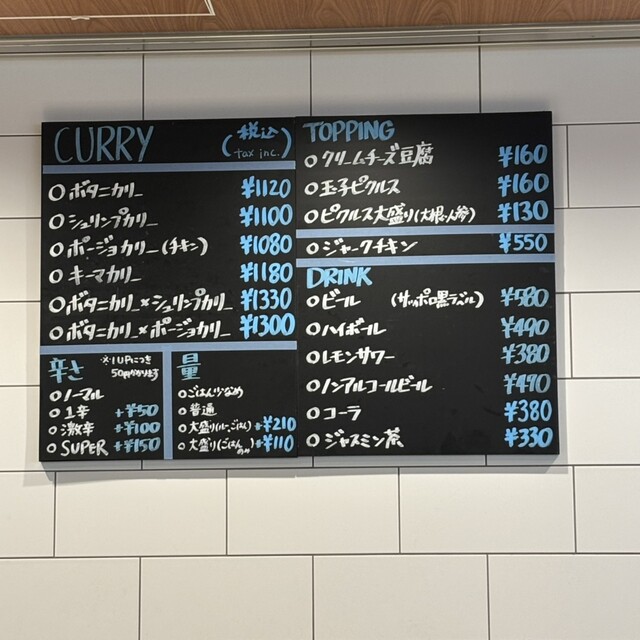 CURRY (税込 tax inc.)
○ボタニカリー ¥1120
○シュリンプカリー ¥1100
○ポージョカリー(チキン) ¥1080
○キーマカリー ¥1180
○ボタニカリー×シュリンプカリー ¥1330
○ボタニカリー×ポージョカリー ¥1300
辛さ ※1UPにつき
50円かかります
○ノーマル
○1辛 +¥50
○激辛 +¥100
○SUPER +¥150
量
○ごはん少なめ
○普通
○大盛り(ルー、ごはん) +¥210
○大盛り(ごはんのみ) +¥110
TOPPING
○クリームチーズ豆腐 ¥160
○玉子ピクルス ¥160
○ピクルス大盛り(大根、人参) ¥130
○ジャークチキン ¥550
DRINK
○ビール (サッポロ黒ラベル) ¥580
○ハイボール ¥490
○レモンサワー ¥380
○ノンアルコールビール ¥470
○コーラ ¥380
○ジャスミン茶 ¥330